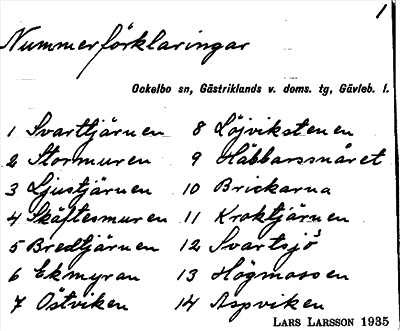 1
Nummerförklaringar
Ockelbo sn, Gästriklands v. doms. tg, Gävleb. l.
1 Svarttjärnen 8 Löjvikstenen
2 Stormuren 9 Habbarssnåret
3 Ljustjärnen 10 Brickarna
4 Skäftesmuren 11 Kroktjärnen
5 Bredtjärnen 12 Svartsjö
6 Ekmyran 13 Högmossen
7 Östviken 14 Aspviken
LARS LARSSON 1935